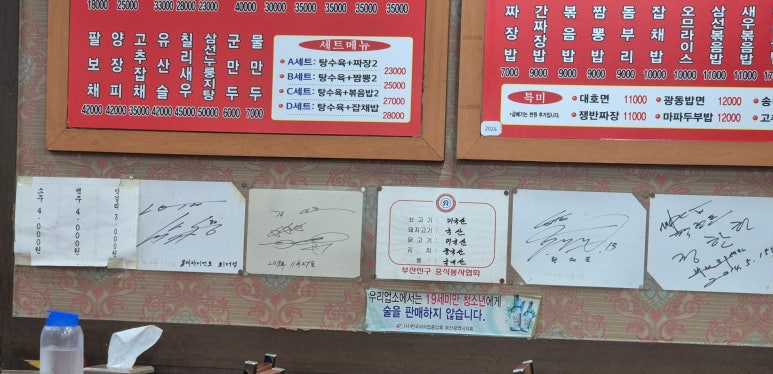 18000
25000
33000
28000
23000
35000
35000
35000
35000
35000
팔보채
양장피
고추잡채
유산슬
칠리새우
삼선누룽지탕
군만두
물만두
42000
42000
35000
42000
42000
50000
6000
7000
세트메뉴
A세트: 탕수육+짜장2
23000
B세트: 탕수육+짬뽕2
25000
C세트: 탕수육+볶음밥2
27000
D세트: 탕수육+잡채밥
28000
짜장밥
간짜장밥
볶음밥
짬뽕밥
돔부리
잡채밥
오므라이스
삼선볶음밥
새우볶음밥
7000
9000
9000
9000
9000
10000
10000
11000
11000
특미
대호면 11000
광동밥면 12000
쟁반짜장 11000
마파두부밥 12000
2024
소주 4.000원
맥주 4.000원
막걸리 3.000원
쇠고기: 미국산
돼지고기: 국산
닭고기: 미국산
김치: 중국산
쌀: 국내산
부산진구 중식봉사협회
우리업소에서는 19세미만 청소년에게
술을 판매하지 않습니다.